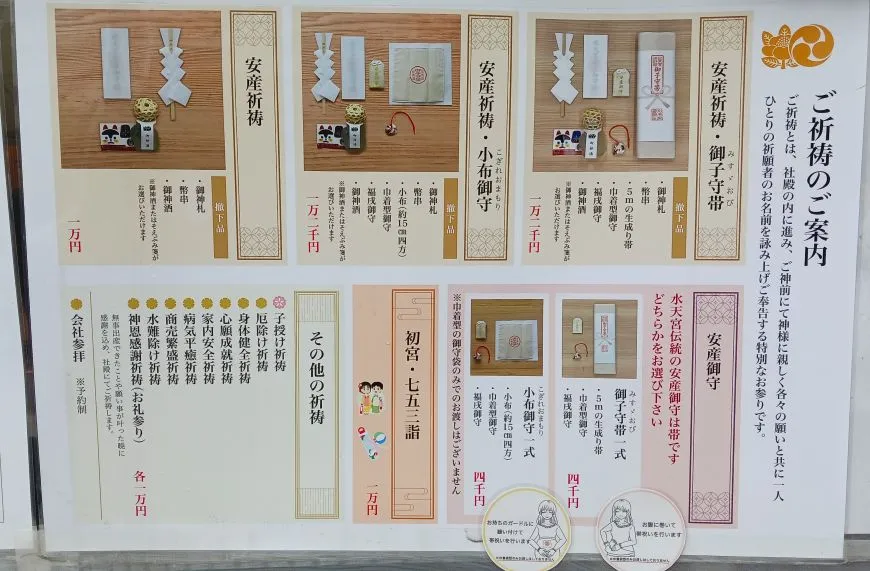 ご祈祷のご案内
ご祈祷とは、社殿の内に進み、ご神前にて神様に親しく各々の願いと共に一人
ひとりの祈願者のお名前を詠み上げご奉告する特別なお参りです。
安産祈祷・御子守帯
みすゞおび
撤下品
・御神札
・幣串
・5mの生成り帯
・巾着型御守
・福戌御守
・御神酒
※御神酒またはそえぶみ箋が
お選びいただけます
一万二千円
安産祈祷・小布御守
こぎれおまもり
撤下品
・御神札
・幣串
・小布(約15㎝四方)
・巾着型御守
・福戌御守
・御神酒
※御神酒またはそえぶみ箋が
お選びいただけます
一万二千円
安産祈祷
撤下品
・御神札
・幣串
・御神酒
※御神酒またはそえぶみ箋が
お選びいただけます
一万円
安産御守
水天宮伝統の安産御守は帯です
どちらかをお選び下さい
みすゞおび
御子守帯一式
・5mの生成り帯
・巾着型御守
・福戌御守
四千円
こぎれおまもり
小布御守一式
・小布(約15㎝四方)
・巾着型御守
・福戌御守
四千円
※巾着型の御守袋のみでのお渡しはございません
お腹に巻いて
帯祝いを行います
お持ちのガードルに
縫い付けて
帯祝いを行います
初宮・七五三詣
一万円
その他の祈祷
子授け祈祷
厄除け祈祷
身体健全祈祷
心願成就祈祷
家内安全祈祷
病気平癒祈祷
商売繁盛祈祷
水難除け祈祷
神恩感謝祈祷(お礼参り)
各一万円
無事出産できたことや願い事が叶った暁に
感謝を込め、社殿にてご祈祷します。
会社参拝 ※予約制